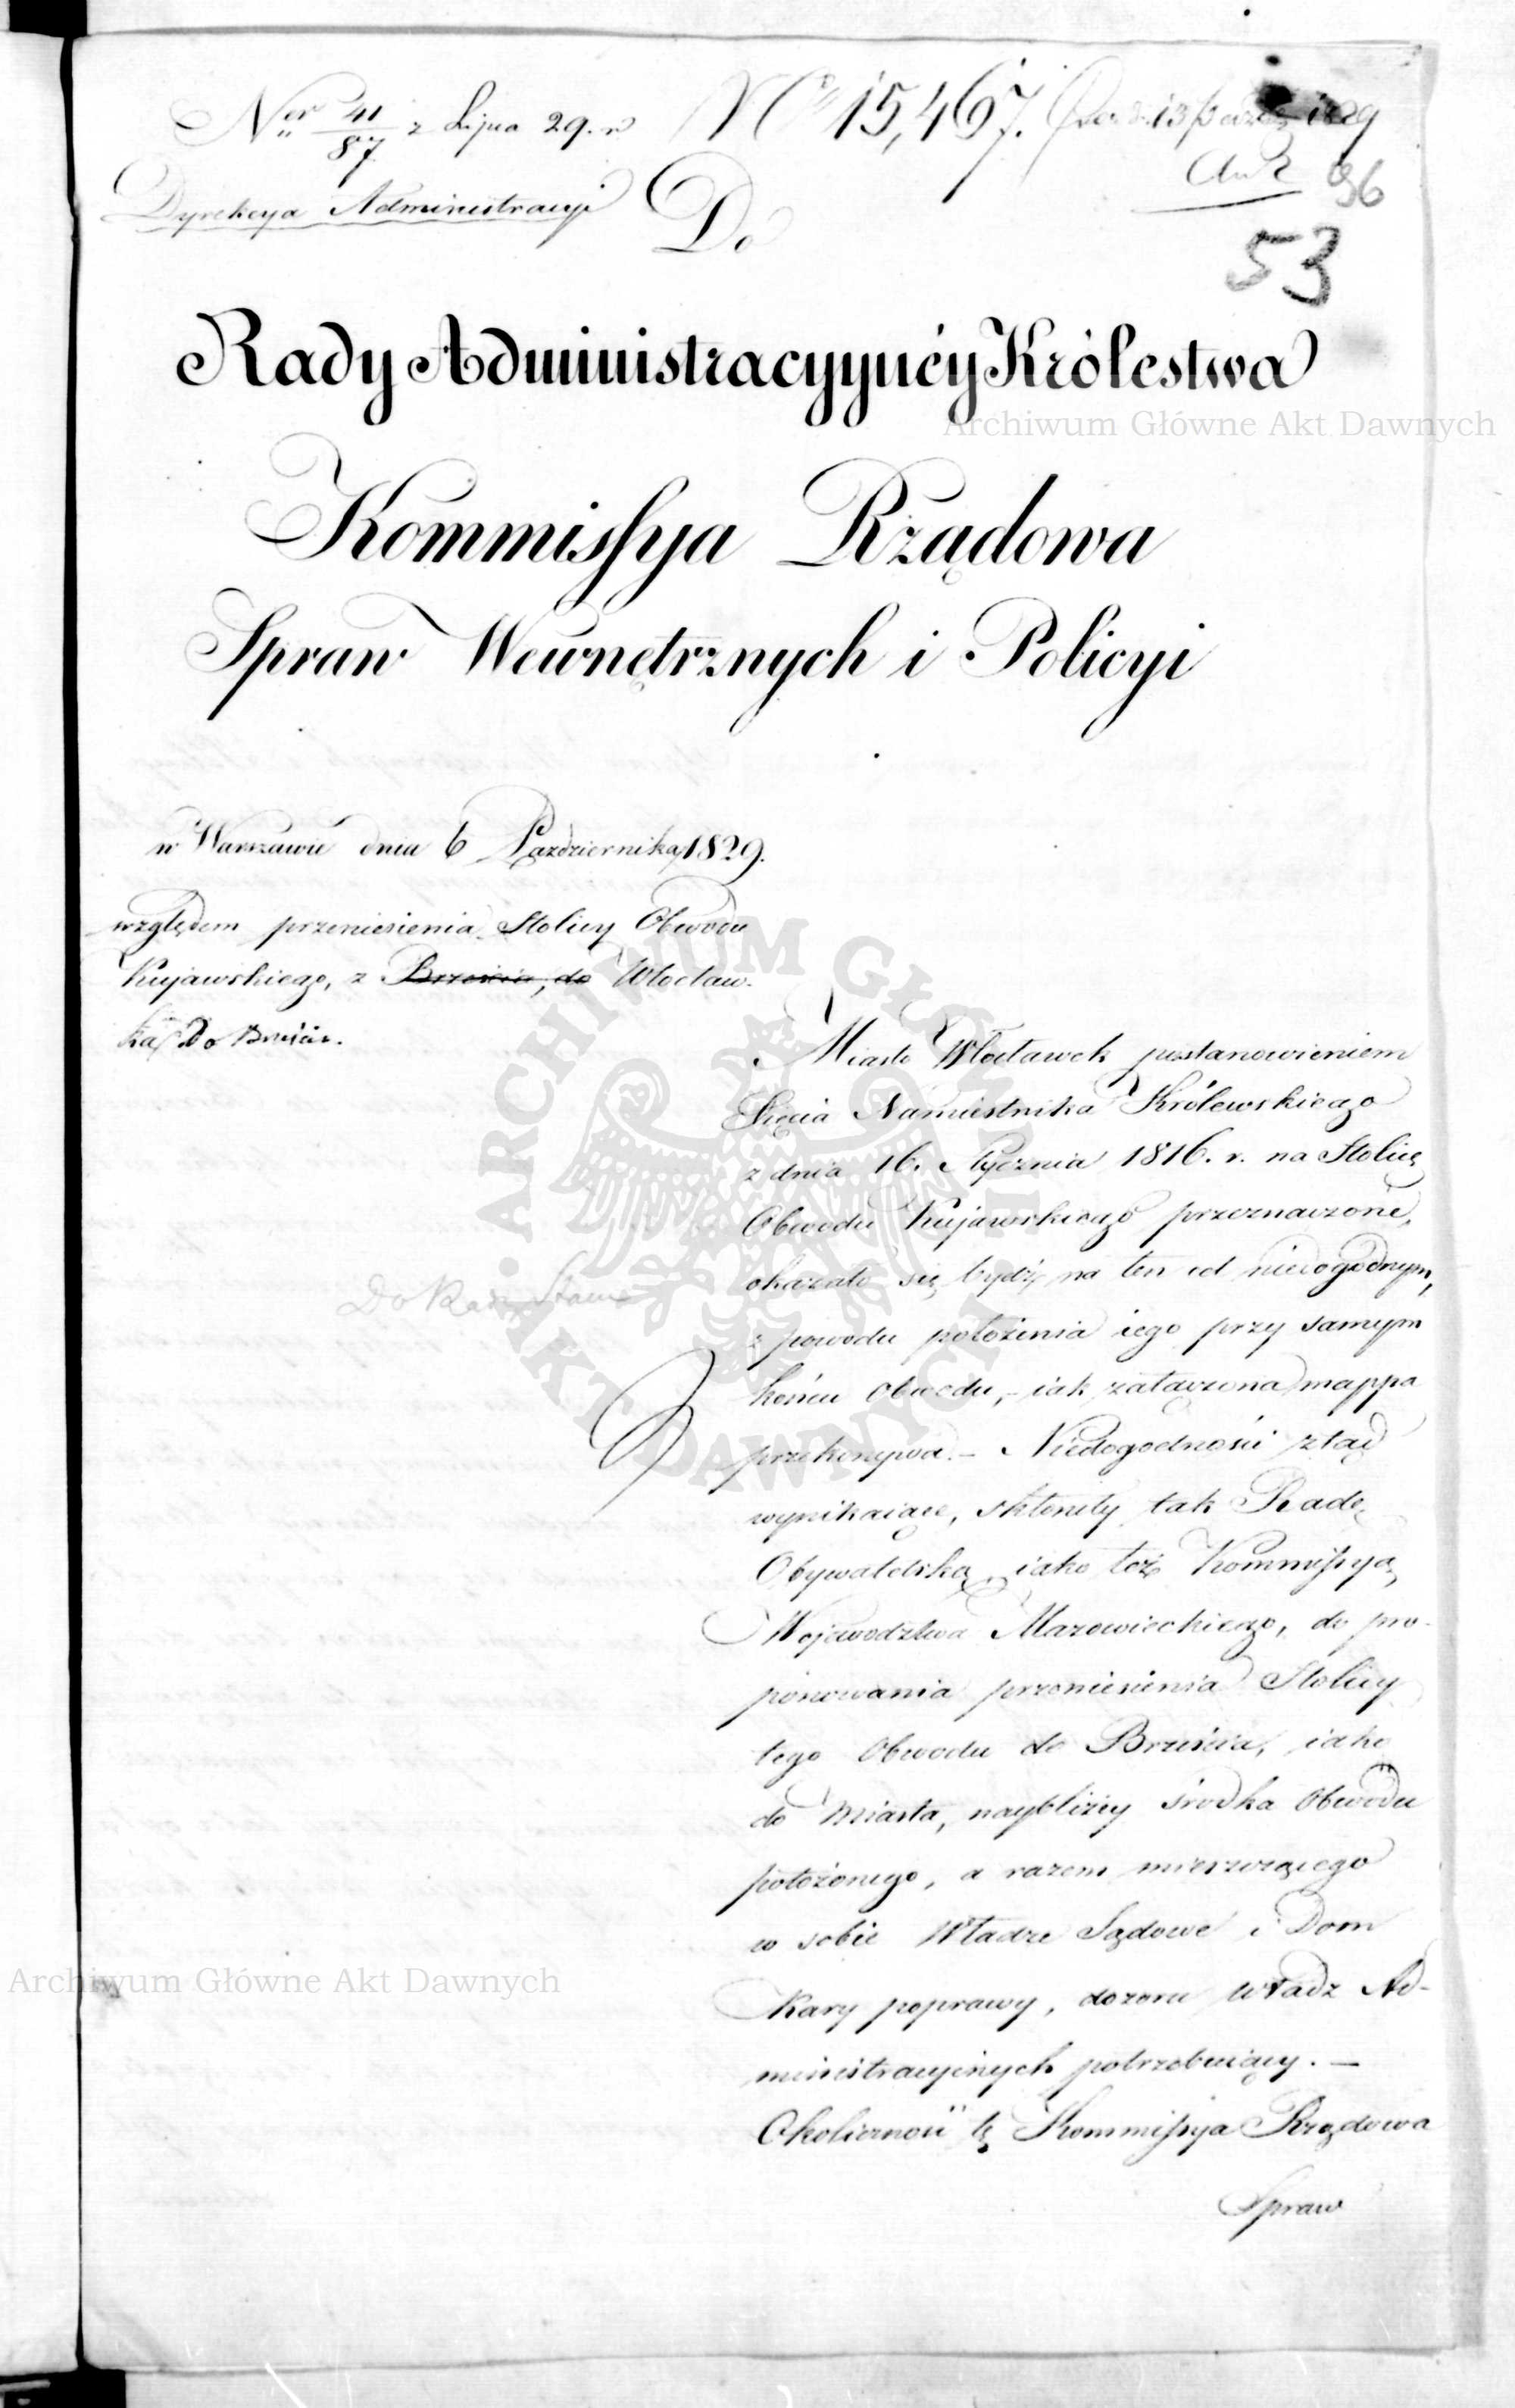 Ner 41/87 z Lipca 29. r
No 15,467. 13 1829
96
Dyrekcya Administracyi
Do
53
Rady Administracyyney Królestwa
Archiwum Główne Akt Dawnych
Kommissyja Rządowa
Spraw Wewnętrznych i Policyi
w Warszawie dnia 6 Października 1829.
względem przeniesienia Stolicy Obwodu
Kujawskiego, z Brześcia, do Włocław-
ka, Do Brześcia.
Miasto Włocławek postanowieniem
Xięcia Namiestnika Królewskiego
z dnia 16. Stycznia 1816. r. na Stolicę
Obwodu Kujawskiego przeznaczone,
okazało się bydź na ten cel niedogodnym,
z powodu położenia iego przy samym
końcu Obwodu, - iak załączona mappa
przekonywa. - Niedogodności ztąd
wynikaiące, skłoniły tak Radę
Obywatelską, iako też Kommissyją
Wojewodztwa Mazowieckiego, do pro-
ponowania przeniesienia Stolicy
tego Obwodu do Brześcia, iako
do Miasta, nayblizey środka Obwodu
położonego, a razem mieszczącego
w sobie Władze Sądowe i Dom
Kary poprawy, dozoru Władz Ad-
ministracyinych potrzebuiący. -
Okoliczność tę Kommissyja Rządowa
Spraw
Do Rady Stanu
ARCHIWUM GŁÓWNE AKT DAWNYCH
Archiwum Główne Akt Dawnych